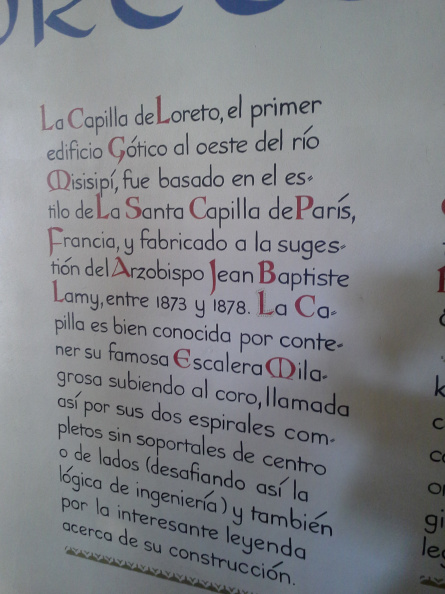 La Capilla de Loreto, el primer
edificio Gótico al oeste del río
Misisipí, fue basado en el es-
tilo de La Santa Capilla de París,
Francia, y fabricado a la suges-
tión del Arzobispo Jean Baptiste
Lamy, entre 1873 y 1878. La Ca-
pilla es bien conocida por conte-
ner su famosa Escalera Mila-
grosa subiendo al coro, llamada
así por sus dos espirales com-
pletos sin soportales de centro
o de lados (desafiando así la
lógica de ingeniería) y también
por la interesante leyenda
acerca de su construcción.